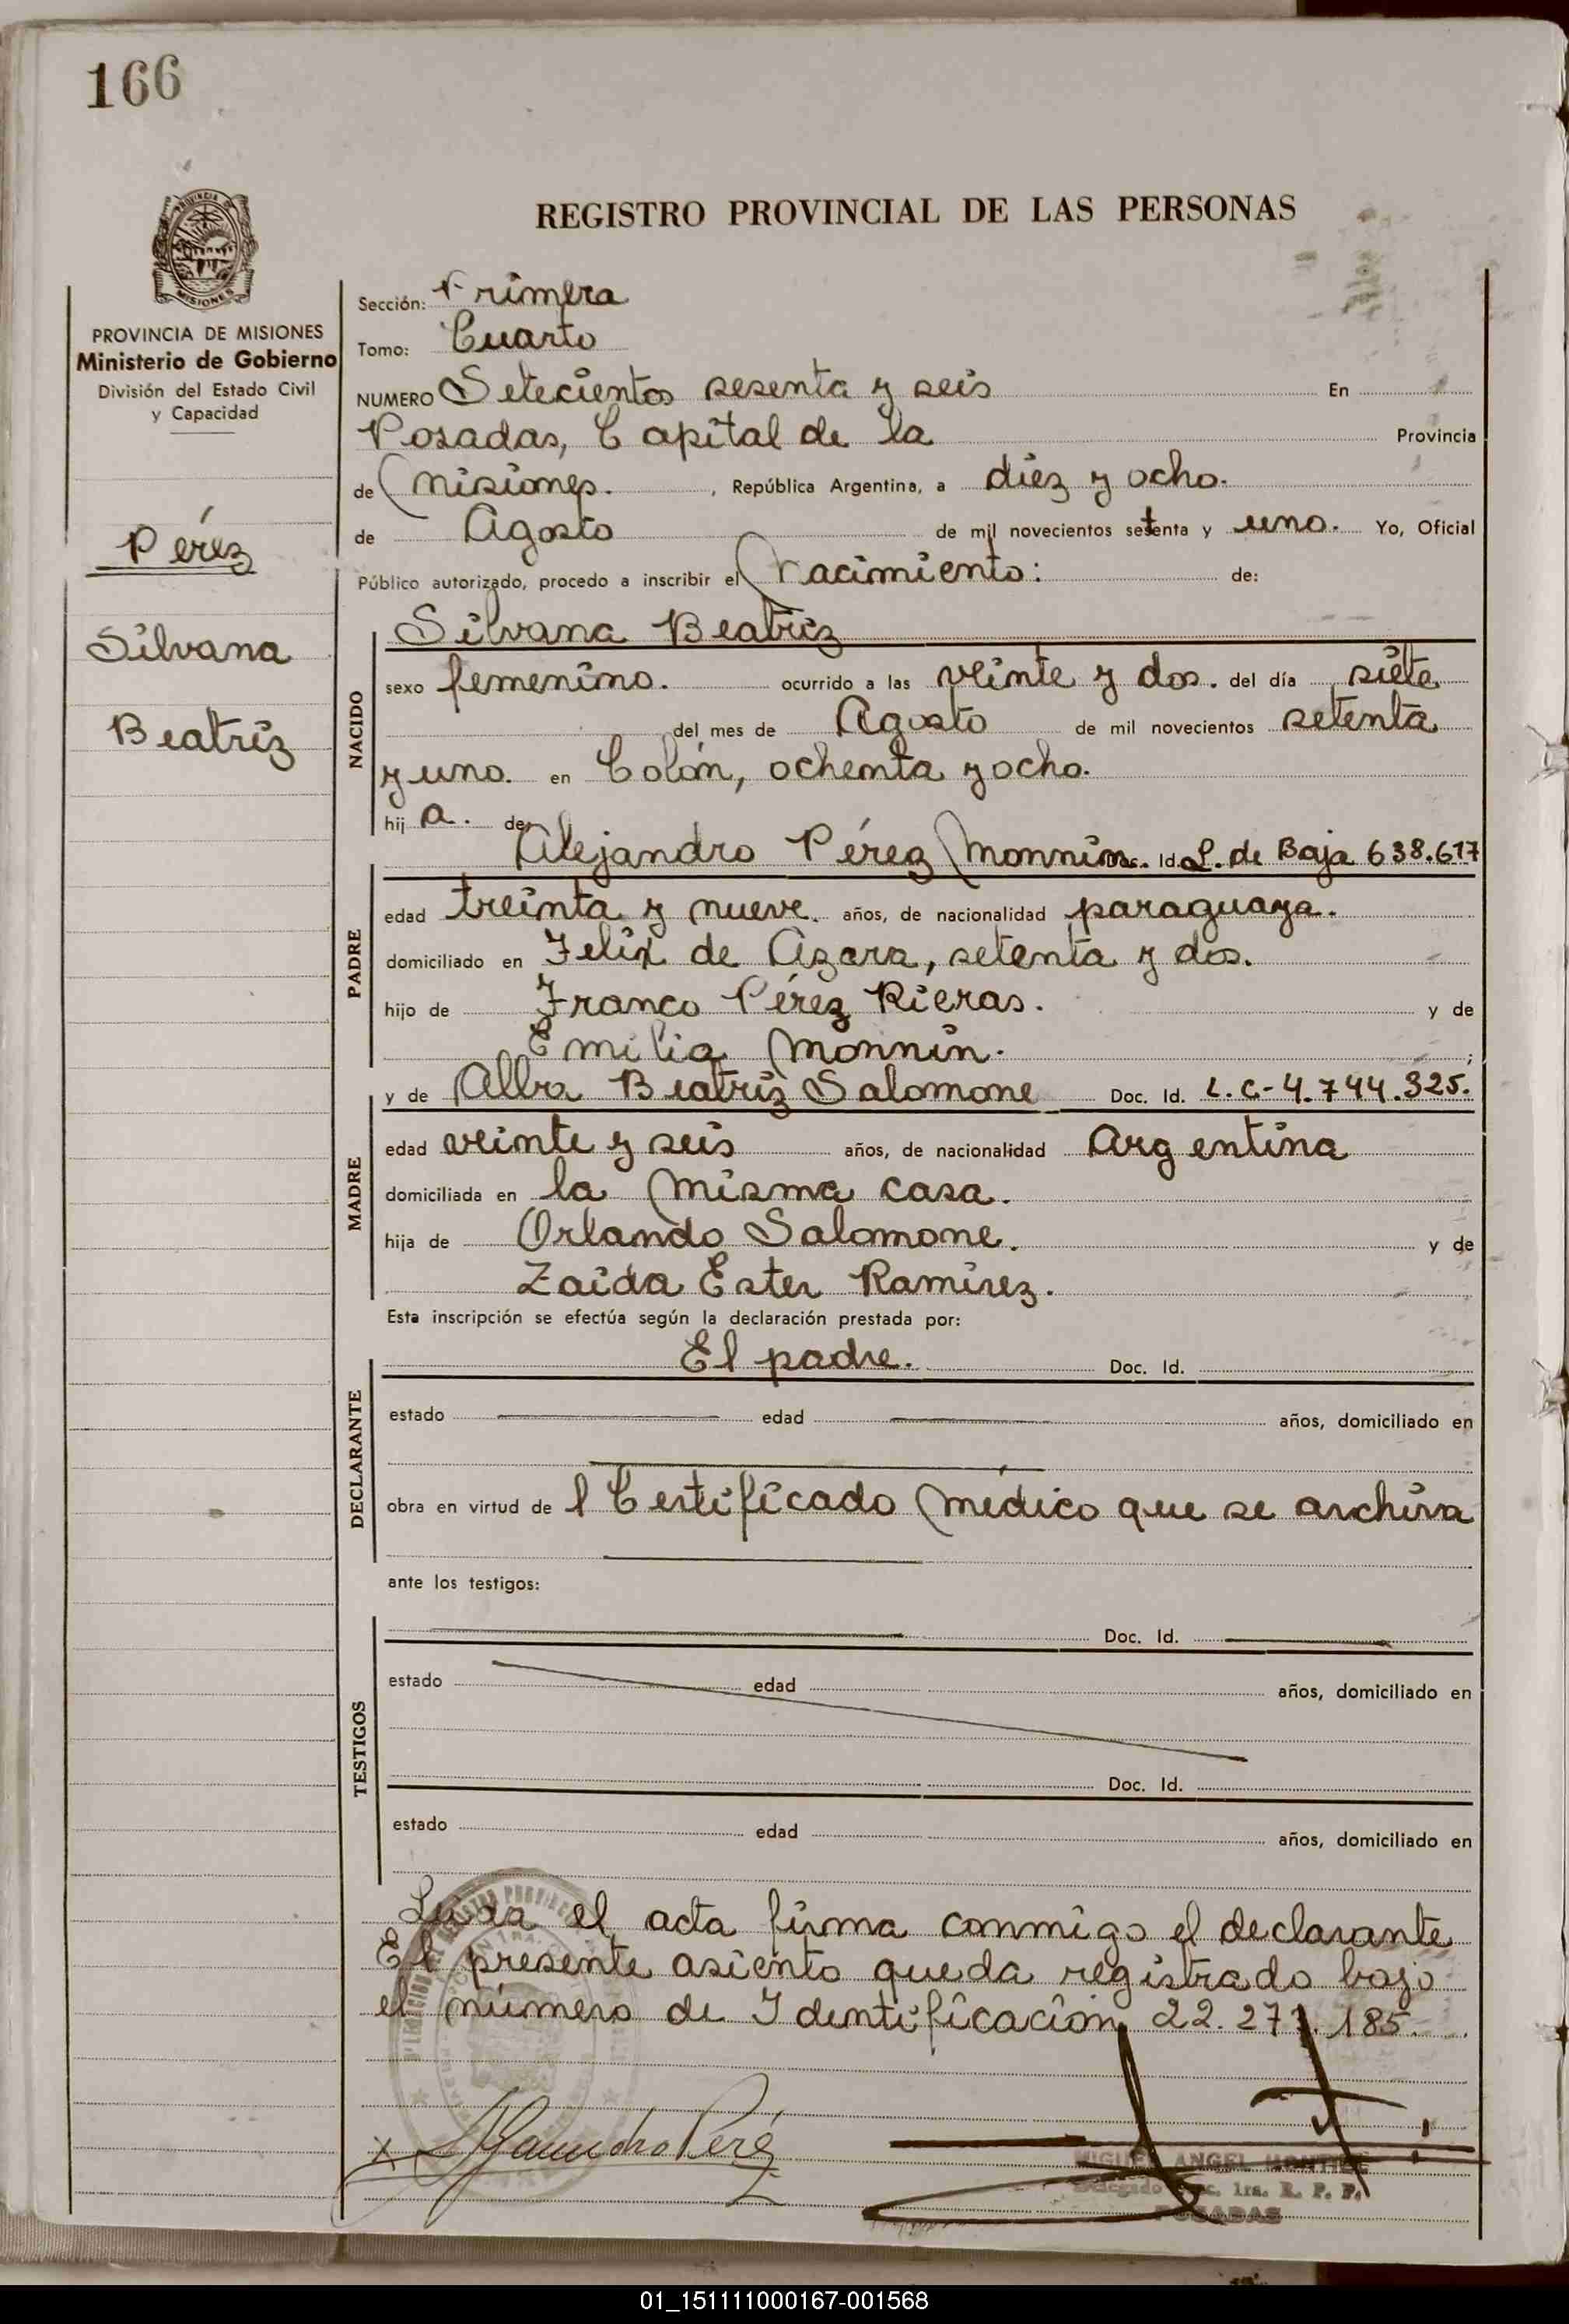 166
REGISTRO PROVINCIAL DE LAS PERSONAS
PROVINCIA DE MISIONES
Ministerio de Gobierno
División del Estado Civil
y Capacidad
Pérez
Silvana
Beatriz
Sección: Primera
Tomo: Cuarto
NUMERO Setecientos sesenta y seis En
Posadas, Capital de la Provincia
de Misiones. , República Argentina, a diez y ocho.
de Agosto de mil novecientos setenta y uno. Yo, Oficial
Público autorizado, procedo a inscribir el Nacimiento: de:
NACIDO
Silvana Beatriz
sexo femenino. ocurrido a las veinte y dos. del día siete
del mes de Agosto de mil novecientos setenta
y uno. en Colón, ochenta y ocho.
hij a. de
Alejandro Pérez Monnin. Doc. Id. L. de Baja 638.617
PADRE
edad treinta y nueve. años, de nacionalidad paraguaya.
domiciliado en Felix de Azara, setenta y dos.
hijo de Franco Pérez Rieras. y de
Emilia Monnin. ;
y de Alba Beatriz Salomone Doc. Id. L.C-4.744.325.
MADRE
edad veinte y seis años, de nacionalidad Argentina
domiciliada en la misma casa.
hija de Orlando Salomone. y de
Zaida Ester Ramirez.
Esta inscripción se efectúa según la declaración prestada por:
El padre. Doc. Id.
DECLARANTE
estado edad años, domiciliado en
obra en virtud de l Certificado médico que se archiva
ante los testigos:
Doc. Id.
TESTIGOS
estado edad años, domiciliado en
Doc. Id.
estado edad años, domiciliado en
Leída el acta firma conmigo el declarante
El presente asiento queda registrado bajo
el número de Identificación 22.27 .185.
x Alejandro Pérez
MIGUEL ANGEL MONTIEL
Delegado Sec. 1ra. R. P. P.
POSADAS
01_151111000167-001568